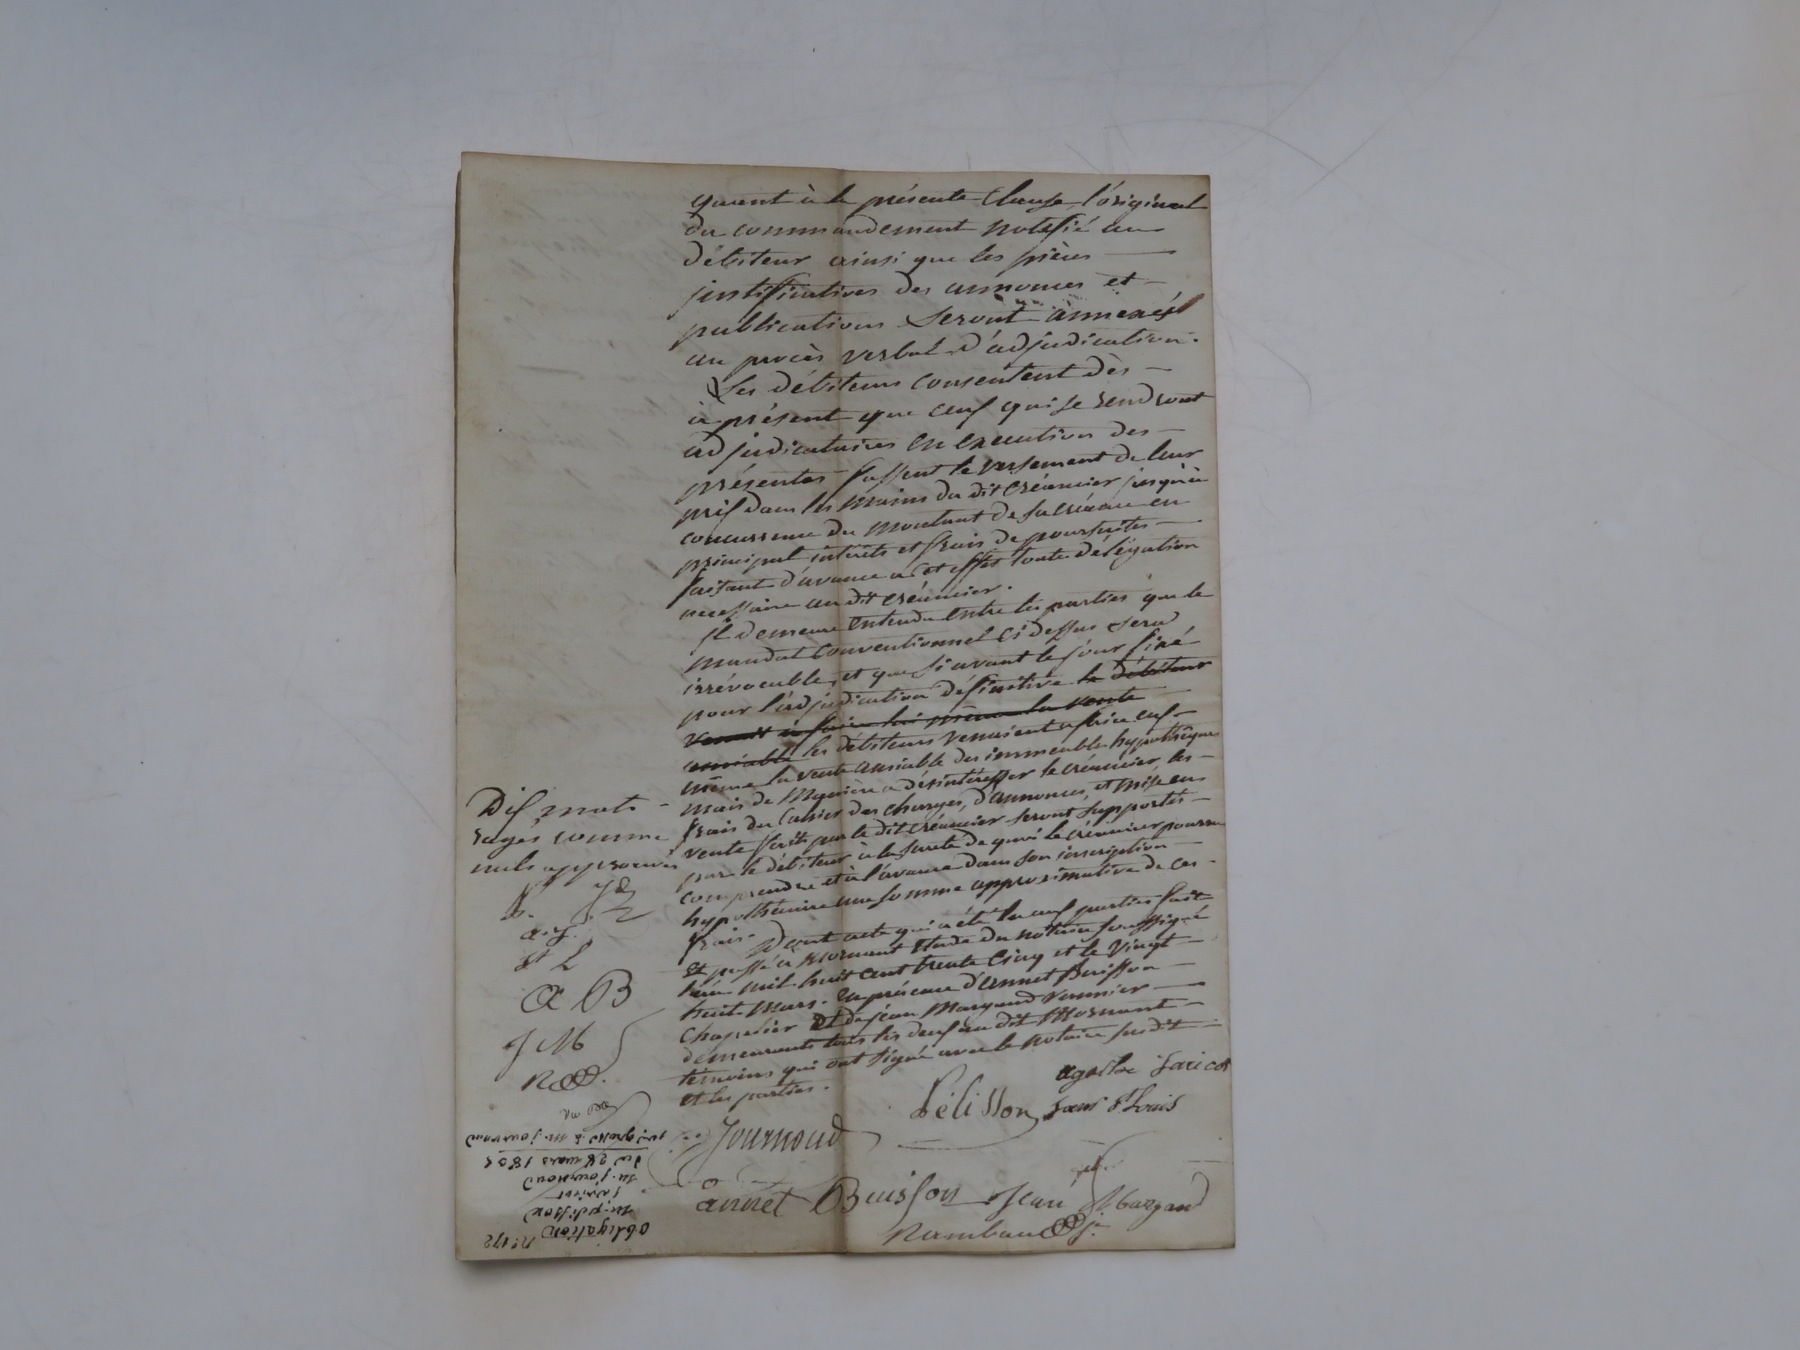 quent à la présente Clause, l'original
du commandement notifié au
débiteur ainsi que les pièces
justificatives des annonces et
publications seront annexés
au procès verbal d'adjudication.
Les débiteurs consentent dès
à présent que ceux qui se rendront
adjudicataires en execution des
présentes fassent le versement de leur
prix dans les mains du dit créancier jusqu'à
concurrence du montant de sa créance en
principal intérêts et frais de poursuites
faisant d'avance a cet effet toute délégation
necessaire au dit créancier.
Il demeure entendu entre les parties que le
mandat conventionnel ci dessus sera
irrévocable, et que si avant le jour fixé
pour l'adjudication définitive le débiteur
venait à faire lui même la vente
amiable les débiteurs venaient a faire eux
même la vente amiable des immeubles hypothéqués
mais de manière a désintéresser le créancier, les
frais du Cahier des charges, d'annonces, et mise en
vente faits par le dit créancier seront supportés
par le débiteur à la sureté de quoi le créancier pourra
comprendre et à l'avance dans son inscription
hypothécaire une somme approximative de ces
frais.
Dont acte qui a été lu aux parties fait
et passé a Mornant Etude du notaire soussigné
l'an mil huit cent trente cinq et le vingt
huit Mars. En présence d'Annet Buisson
chapelier et de jean Margand vannier
demeurants tous les deux au dit Mornant
témoins qui ont signé avec le notaire susdit
et les parties.
Dix mots
rayés comme
nuls approuvés
a.j.
st L
a B
J M
agathe jaricot
Pélisson sœur St Louis
Journoud
annet Buisson Jean Margand
Rambaud
N° 172
Obligation
m. pélisson
jaricot
m. journoud
du 28 mars 1835